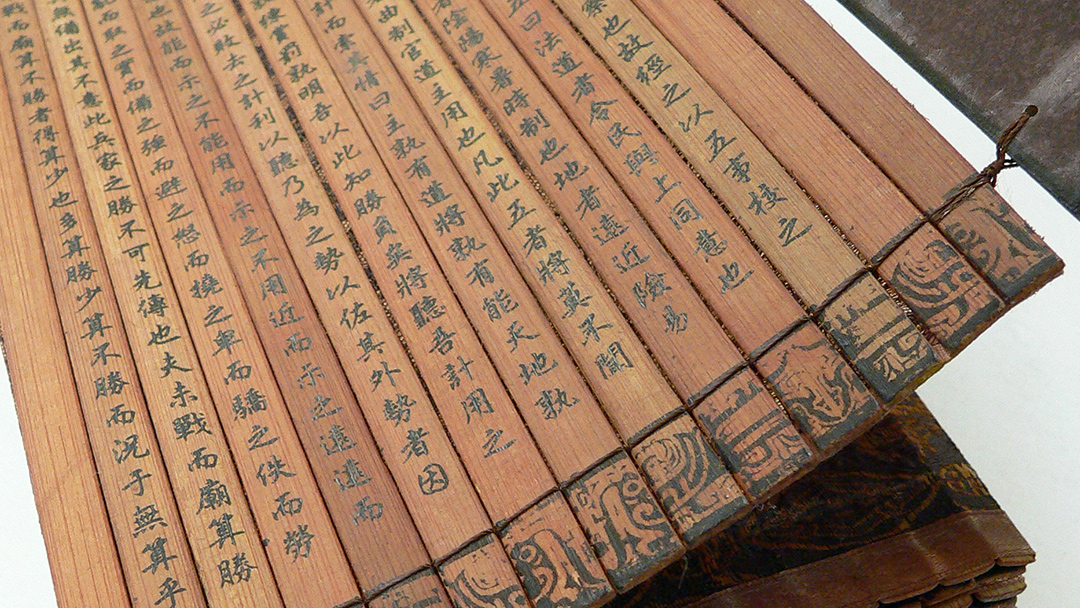 察也故經之以五事校之
五曰法道者令民與上同意也
者陰陽寒暑時制也地者遠近險易
曲制官道主用也凡此五者將莫不聞
計而索其情曰主孰有道將孰有能天地孰
練賞罰孰明吾以此知勝負矣將聽吾計用之
之必敗去之計利以聽乃為之勢以佐其外勢者因
也故能而示之不能用而示之不用近而示之遠遠而
亂而取之實而備之強而避之怒而撓之卑而驕之佚而勞
無備出其不意此兵家之勝不可先傳也夫未戰而廟算勝
戰而廟算不勝者得算少也多算勝少算不勝而況于無算乎